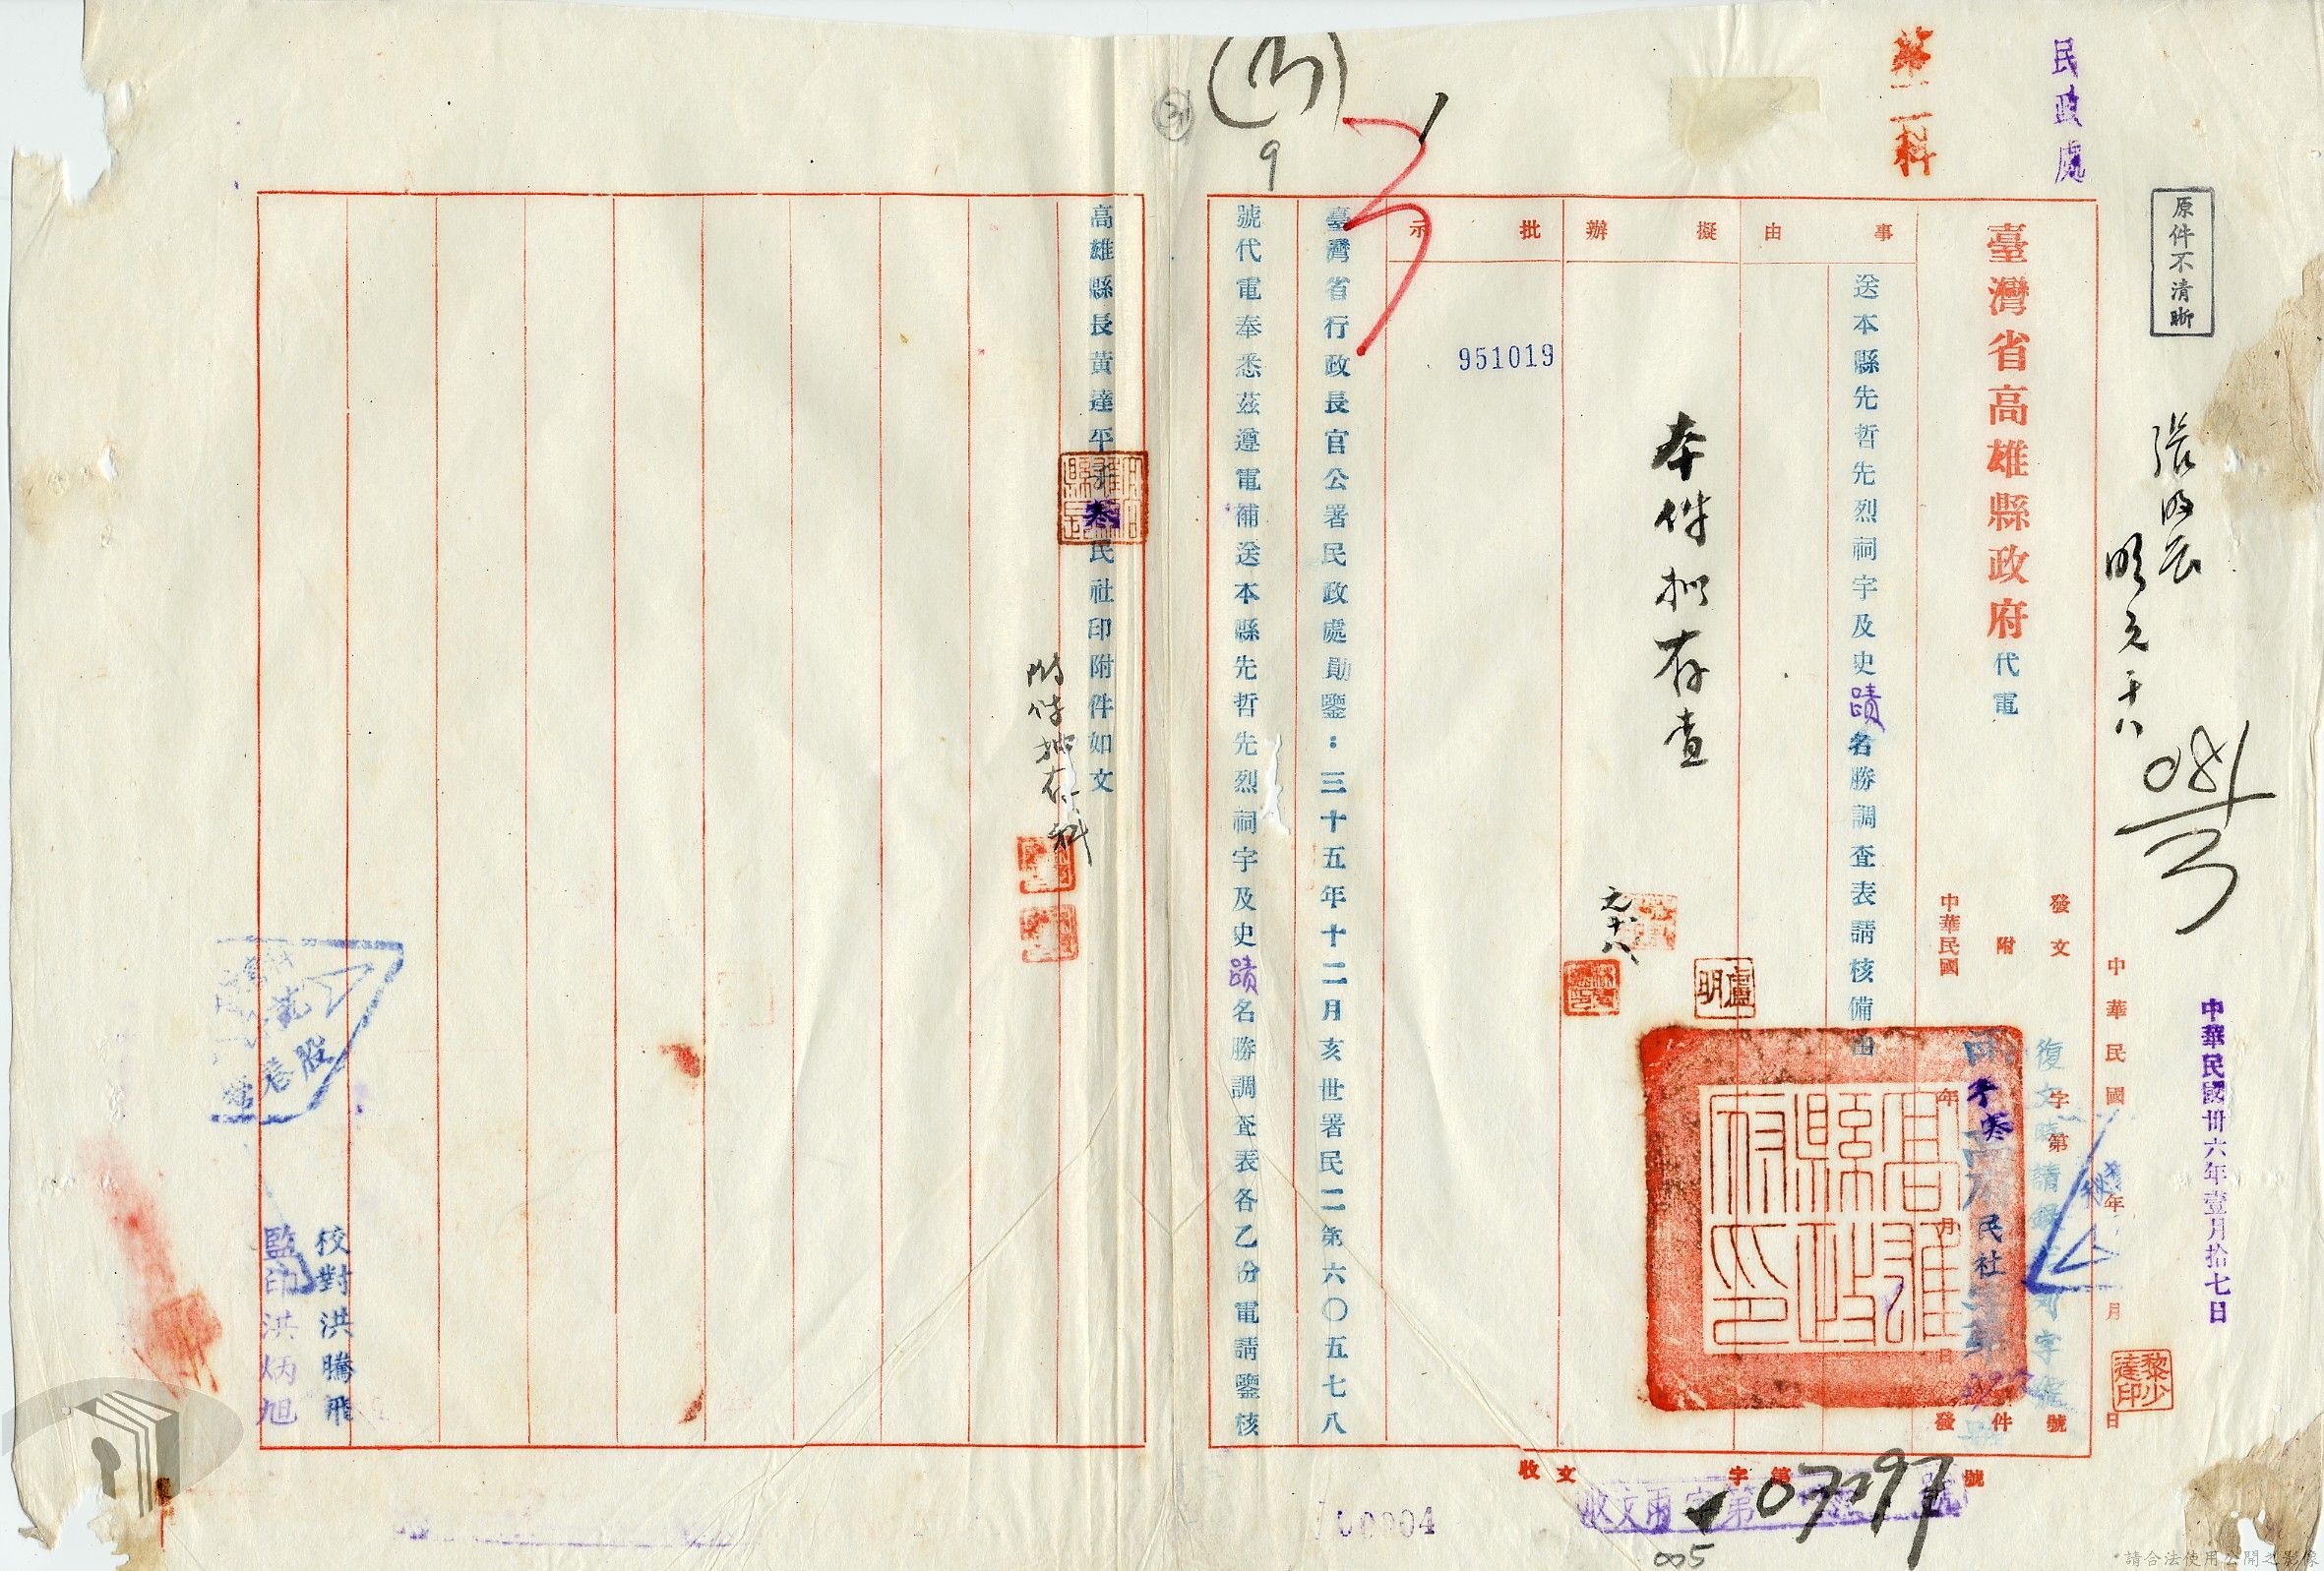 民政處
第二科
原件不清晰
中華民國卅六年壹月拾七日
黎少達印
中華民國 年 月 日
臺灣省高雄縣政府代電
發文 字第 號
附 件
中華民國 年 月 日發
民社
事由
送本縣先哲先烈祠宇及史蹟名勝調查表請核備由
擬辦
本件擬存查
元十八
盧明
批示
951019
臺灣省行政長官公署民政處勛鑒：三十五年十二月亥世署民二第六〇五七八
號代電奉悉茲遵電補送本縣先哲先烈祠宇及史蹟名勝調查表各乙份電請鑒核
高雄縣長黃達平子寒民社印附件如文
附件抽存一科
高雄縣政府印
收文 字第 號
07297
005
9
校對洪騰飛
監印洪炳旭
管卷股
請合法使用公開之影像